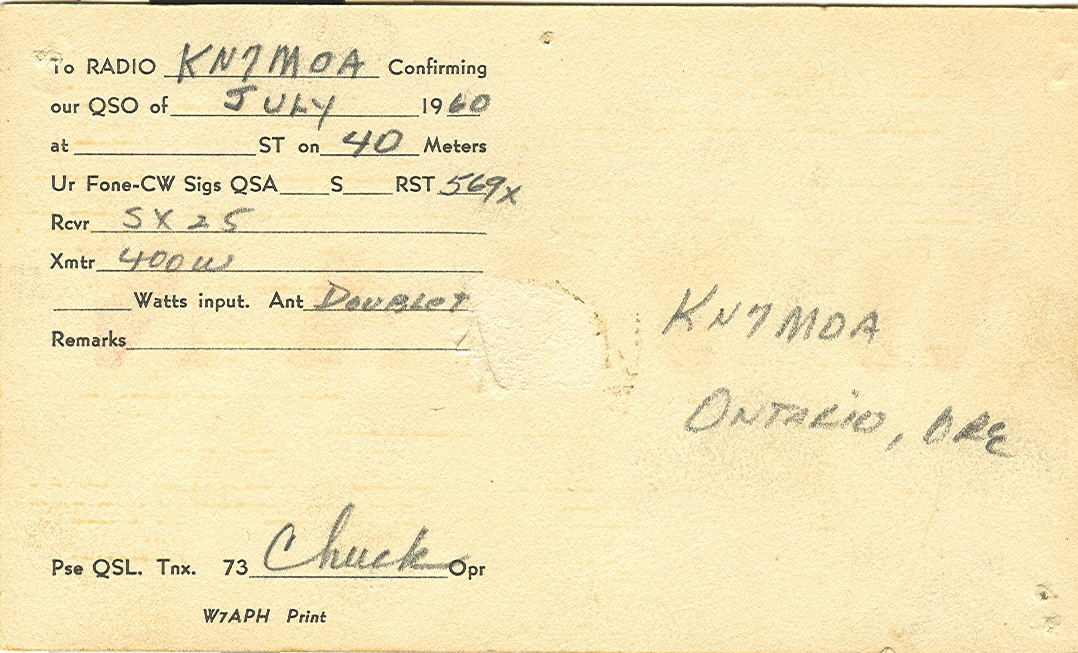 To RADIO KN7MOA Confirming
our QSO of JULY 1960
at ST on 40 Meters
Ur Fone-CW Sigs QSA S RST 569x
Rcvr SX25
Xmtr 400W
Watts input. Ant DOUBLET
Remarks
KN7MOA
ONTARIO, ORE
Pse QSL. Tnx. 73 Chuck Opr
W7APH Print